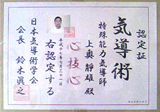 認定証
気導術
特殊能力気導師
上奥靜雄殿
心技心
右認定する
日本気導術学会
会長 鈴木眞之